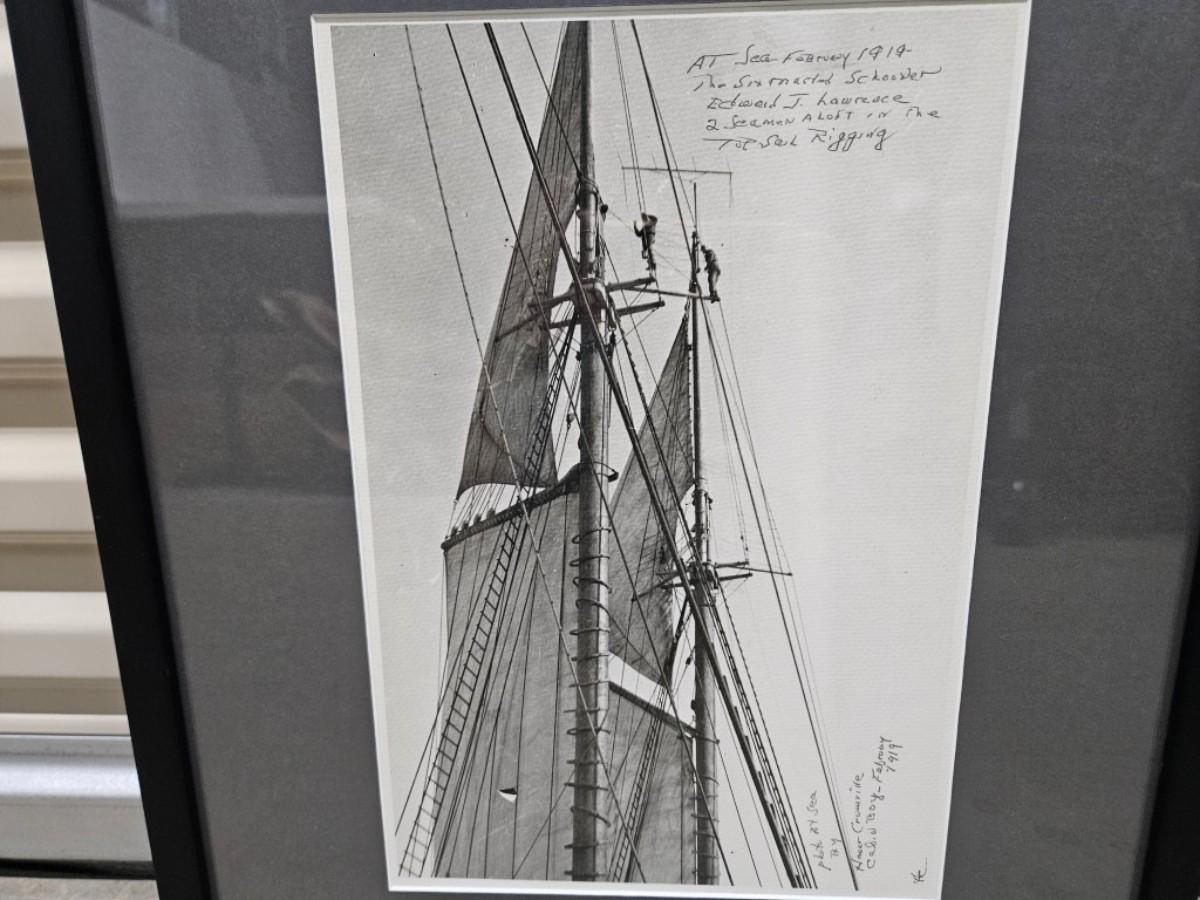 AT Sea February 1919
The Sixmasted Schooner
Edward J. Lawrence
2 Seamen Aloft in The
Top Sail Rigging
photo AT Sea
By
Cabin Boy - February
1919